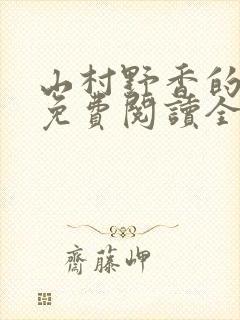 山村野香的
免費閱讀全
齋藤岬